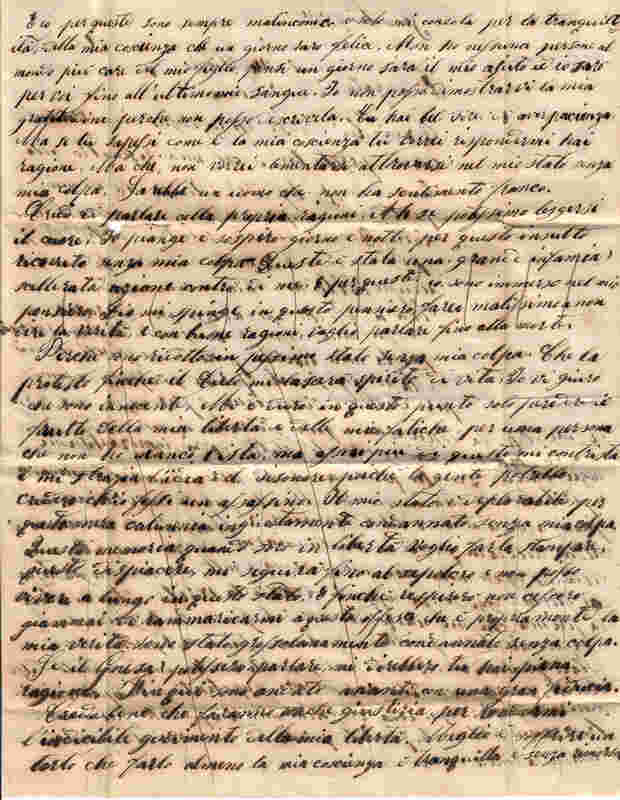 E io per questo sono sempre malinconico e solo mi consola per la tranquill
ità, della mia coscienza che un giorno sarò felice. Non ho nessuna persone al
mondo più care che mio figlio, pensi un giorno sarà il mio ajuto ed io sarò
per voi fino all'ultimo mio sangue. Io non posso dimostrarvi la mia
gratitudine perchè non posso scriverla. Tu hai bel dire di aver pacienza
Ma se tu sapessi come è la mia coscienza tu vorrei rispondermi hai
ragione. Ma che, non vorrei lamentarsi a trovarsi nel mio stato senza
mia colpa. Sarebbe un uomo che non ha sentimento franco.
Credo di parlare colla propria ragione. Ah se potessimo leggersi
il cuore. Io piango e sospiro giorno e notte, per questo insulto
ricevuto senza mia colpa. Questa è stata una grande infamia
scellerata azione contro di me. E per questo io sono immerso nel mio
pensiero. Dio mi spinge in questo pensiero, farei malissimo a non
dire la verità, e con buone ragioni, voglio parlare fino alla morte.
Perchè sono ridotto in pessimo stato senza mia colpa. Che da
protesto finchè il Cielo mi lascerà spirito di vita. Io vi giuro
che sono innocente. Mi è duro in questo punto solo perdere il
frutto della mia libertà e delle mie fatiche, per una persona
che non ho manco vista, ma assai più di questo mi contrista
e mi strazia l'idea del disonore perchè la gente potrebbe
credere ch'io fossi un assassino. Il mio stato è deplorabile per
questa mera calunnia ingiustamente condannato senza mia colpa.
Questa memoria quando sarò in libertà voglio farla stampare,
questo dispiacere, mi seguirà fino al sepolcro e non posso
vivere a lungo in questo stato. E finchè respirerò non cesserò
giammai di rammaricarmi a questa offesa che è propriamente la
mia verità sono stato grossolanamente condannato senza colpa.
Se il potessero parlare, mi direbbero tu hai piena
ragione. sono andato avanti con una gran fiducia.
Credo bene che faranno anche giustizia per
l'indicibile della mia libertà. Voglio soffrire un
torto che farlo almeno la mia coscienza è tranquilla e senza rimorso